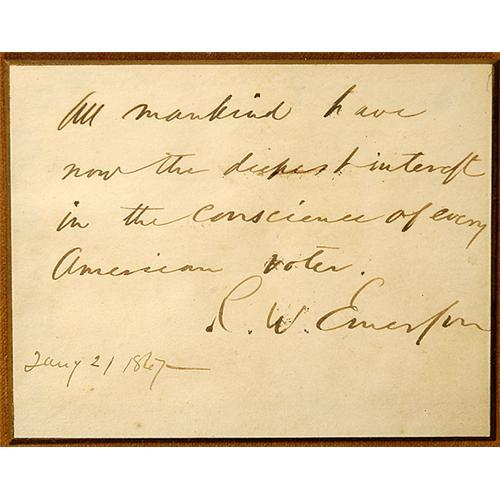 All mankind have
now the deepest interest
in the conscience of every
American voter.
R. W. Emerson
Jany 21 1867